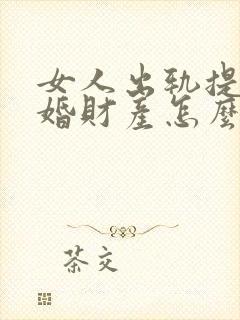 女人出轨提
婚財產怎麼
茶交